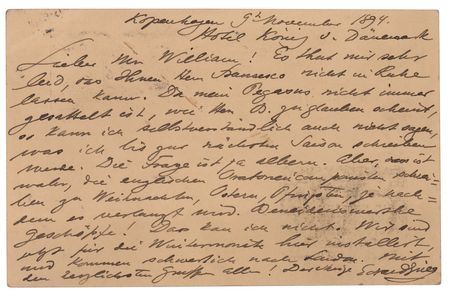 Kopenhagen 9th November 1894.
Hotel König v. Dänemark
Lieber Mr William! Es thut mir sehr
leid, das Ihnen Herr nicht in Ruhe
lassen kann. Da mein Pegasus nicht immer
gesattelt ist, wie Herr B. zu glauben scheint,
so kann ich selbstverständlich auch nicht sagen,
was ich bis zur nächsten Saison schreiben
werde. Die Frage ist ja albern. Aber, das ist
wahr, die englischen Oratoriencomponisten schrei-
ben zu Weihnachten, Ostern, Pfingsten, je nach-
dem es verlangt wird.
Geschöpfe! Das kann ich nicht. Wir sind
jetzt für die Wintermonate hier installirt,
und kommen schwerlich nach
den herzlichsten Grüssen allen! Ihr Edvard Grieg